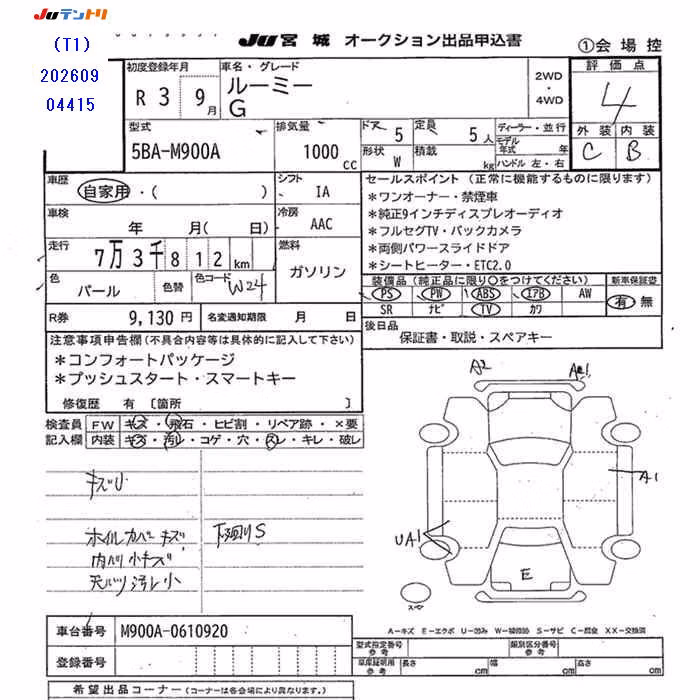 Juテントリ
(T1)
202609
04415
Ju宮城 オークション出品申込書
①会場控
初度登録年月
R 3 9月
車名・グレード
ルーミー
G
2WD
・
4WD
評価点
4
外装 内装
C B
型式
5BA-M900A
排気量
1000
cc
ドア 5
定員 5人
形状 W
積載 kg
ディーラー・並行
モデル年式 年
ハンドル 左・右
車歴
自家用・( )
シフト
IA
車検
年 月( 日)
冷房
AAC
走行
7万3千812km
燃料
ガソリン
色
パール
色替
色コード
W24
R券 9,130円
名変通知期限 月 日
セールスポイント (正常に機能するものに限ります)
*ワンオーナー・禁煙車
*純正9インチディスプレオーディオ
*フルセグTV・バックカメラ
*両側パワースライドドア
*シートヒーター・ETC2.0
装備品 (純正品に限り○をつけてください)
新車保証書
PS PW ABS エアB AW
SR ナビ TV カワ
有 無
後日品
保証書・取説・スペアキー
注意事項申告欄(不具合内容等は具体的に記入して下さい)
*コンフォートパッケージ
*プッシュスタート・スマートキー
修復歴 有 〔箇所 〕
検査員
記入欄
FW キズ・飛石・ヒビ割・リペア跡・×要
内装 キズ・汚レ・コゲ・穴・スレ・キレ・破レ
キズU
ホイルカバーキズ
下廻りS
内バリ小キズ
天バリ汚レ小
A2
A1
UA1
E
スペア
A-キズ E-エクボ U-凹み W-補修跡 S-サビ C-腐食 XX-交換済
車台番号 M900A-0610920
登録番号
型式指定番号
参考
類別区分番号
参考
車庫証明用
参考
長さ cm 幅 cm 高さ cm
希望出品コーナー (コーナーは各会場により異なります。)